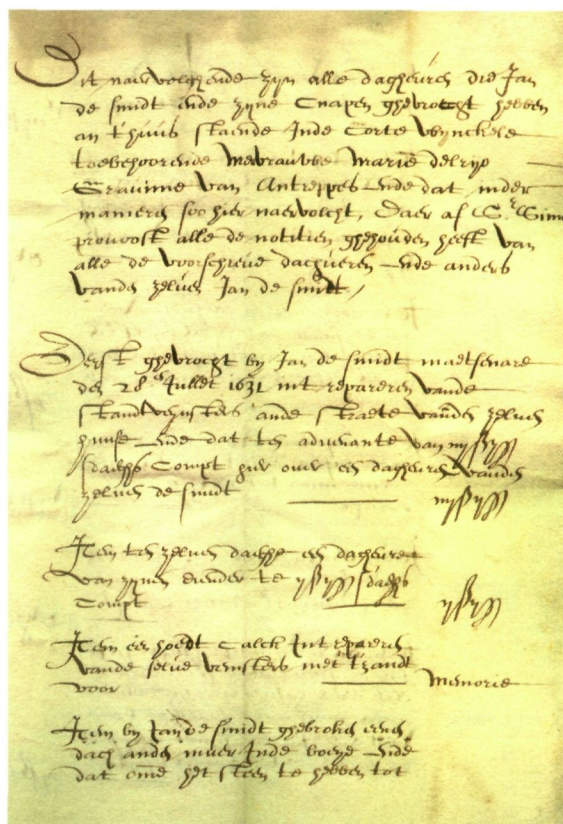 Dit naervolghende zijn alle daghuren die Jan
de smidt ende zijne Cnapen ghevrocht hebben
an t'huus staende Inde Corte Wynckele
toebehoorende mevrauwe Marie delrijo
Grauinne van Antreppes ende dat inder
manieren soo hier naervolcht, Daer af Sr
provoost alle de notitien ghehouden heeft van
alle de voorschreve dachueren ende anders
vanden zelven Jan de smidt /
Eerst ghevrocht by Jan de smidt maetsenare
den 28en Jullet 1631 int repareren vande
ande straete vanden zelven
huuse ende dat ten advenante van
sdaechs Compt hier over een dagheure vanden
zelven de smidt
Item ten zelven daeghe een dagheure
van zijnen diender te sdaechs
Compt
Item een hoedt Calck Int repareren
vande selve veinsters met t'zandt
voor Memorie
Item by Jan de smidt ghebroken eenen
dach anden muer Inde ende
dat ome het steen te hebben tot